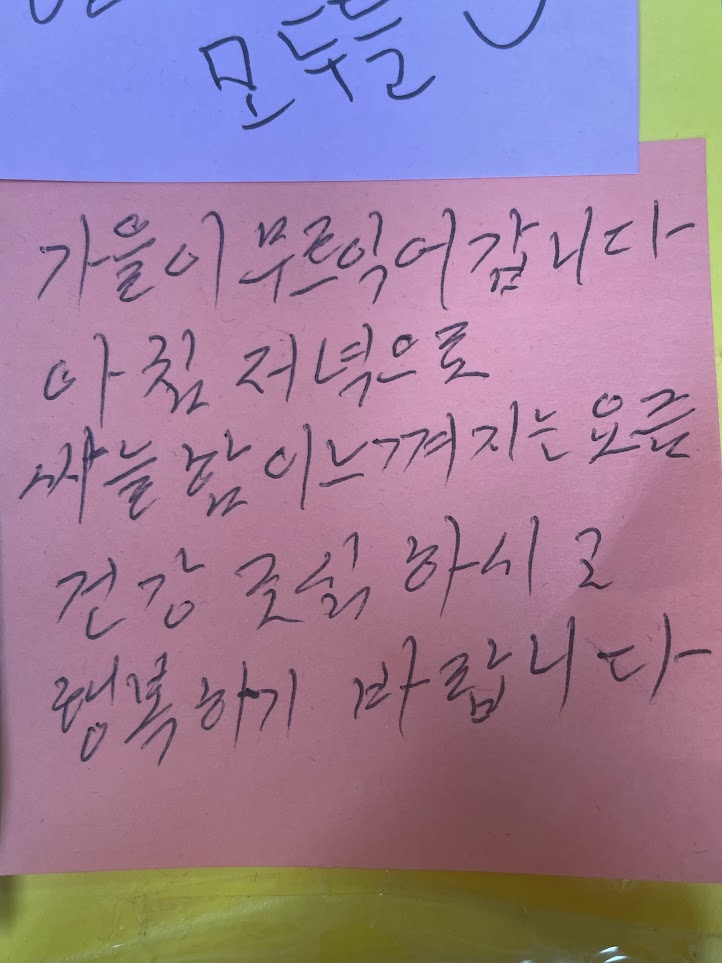 모두들
가을이 무르익어 갑니다
아침 저녁으로
싸늘함이 느껴지는 요즘
건강 조심 하시고
행복하기 바랍니다